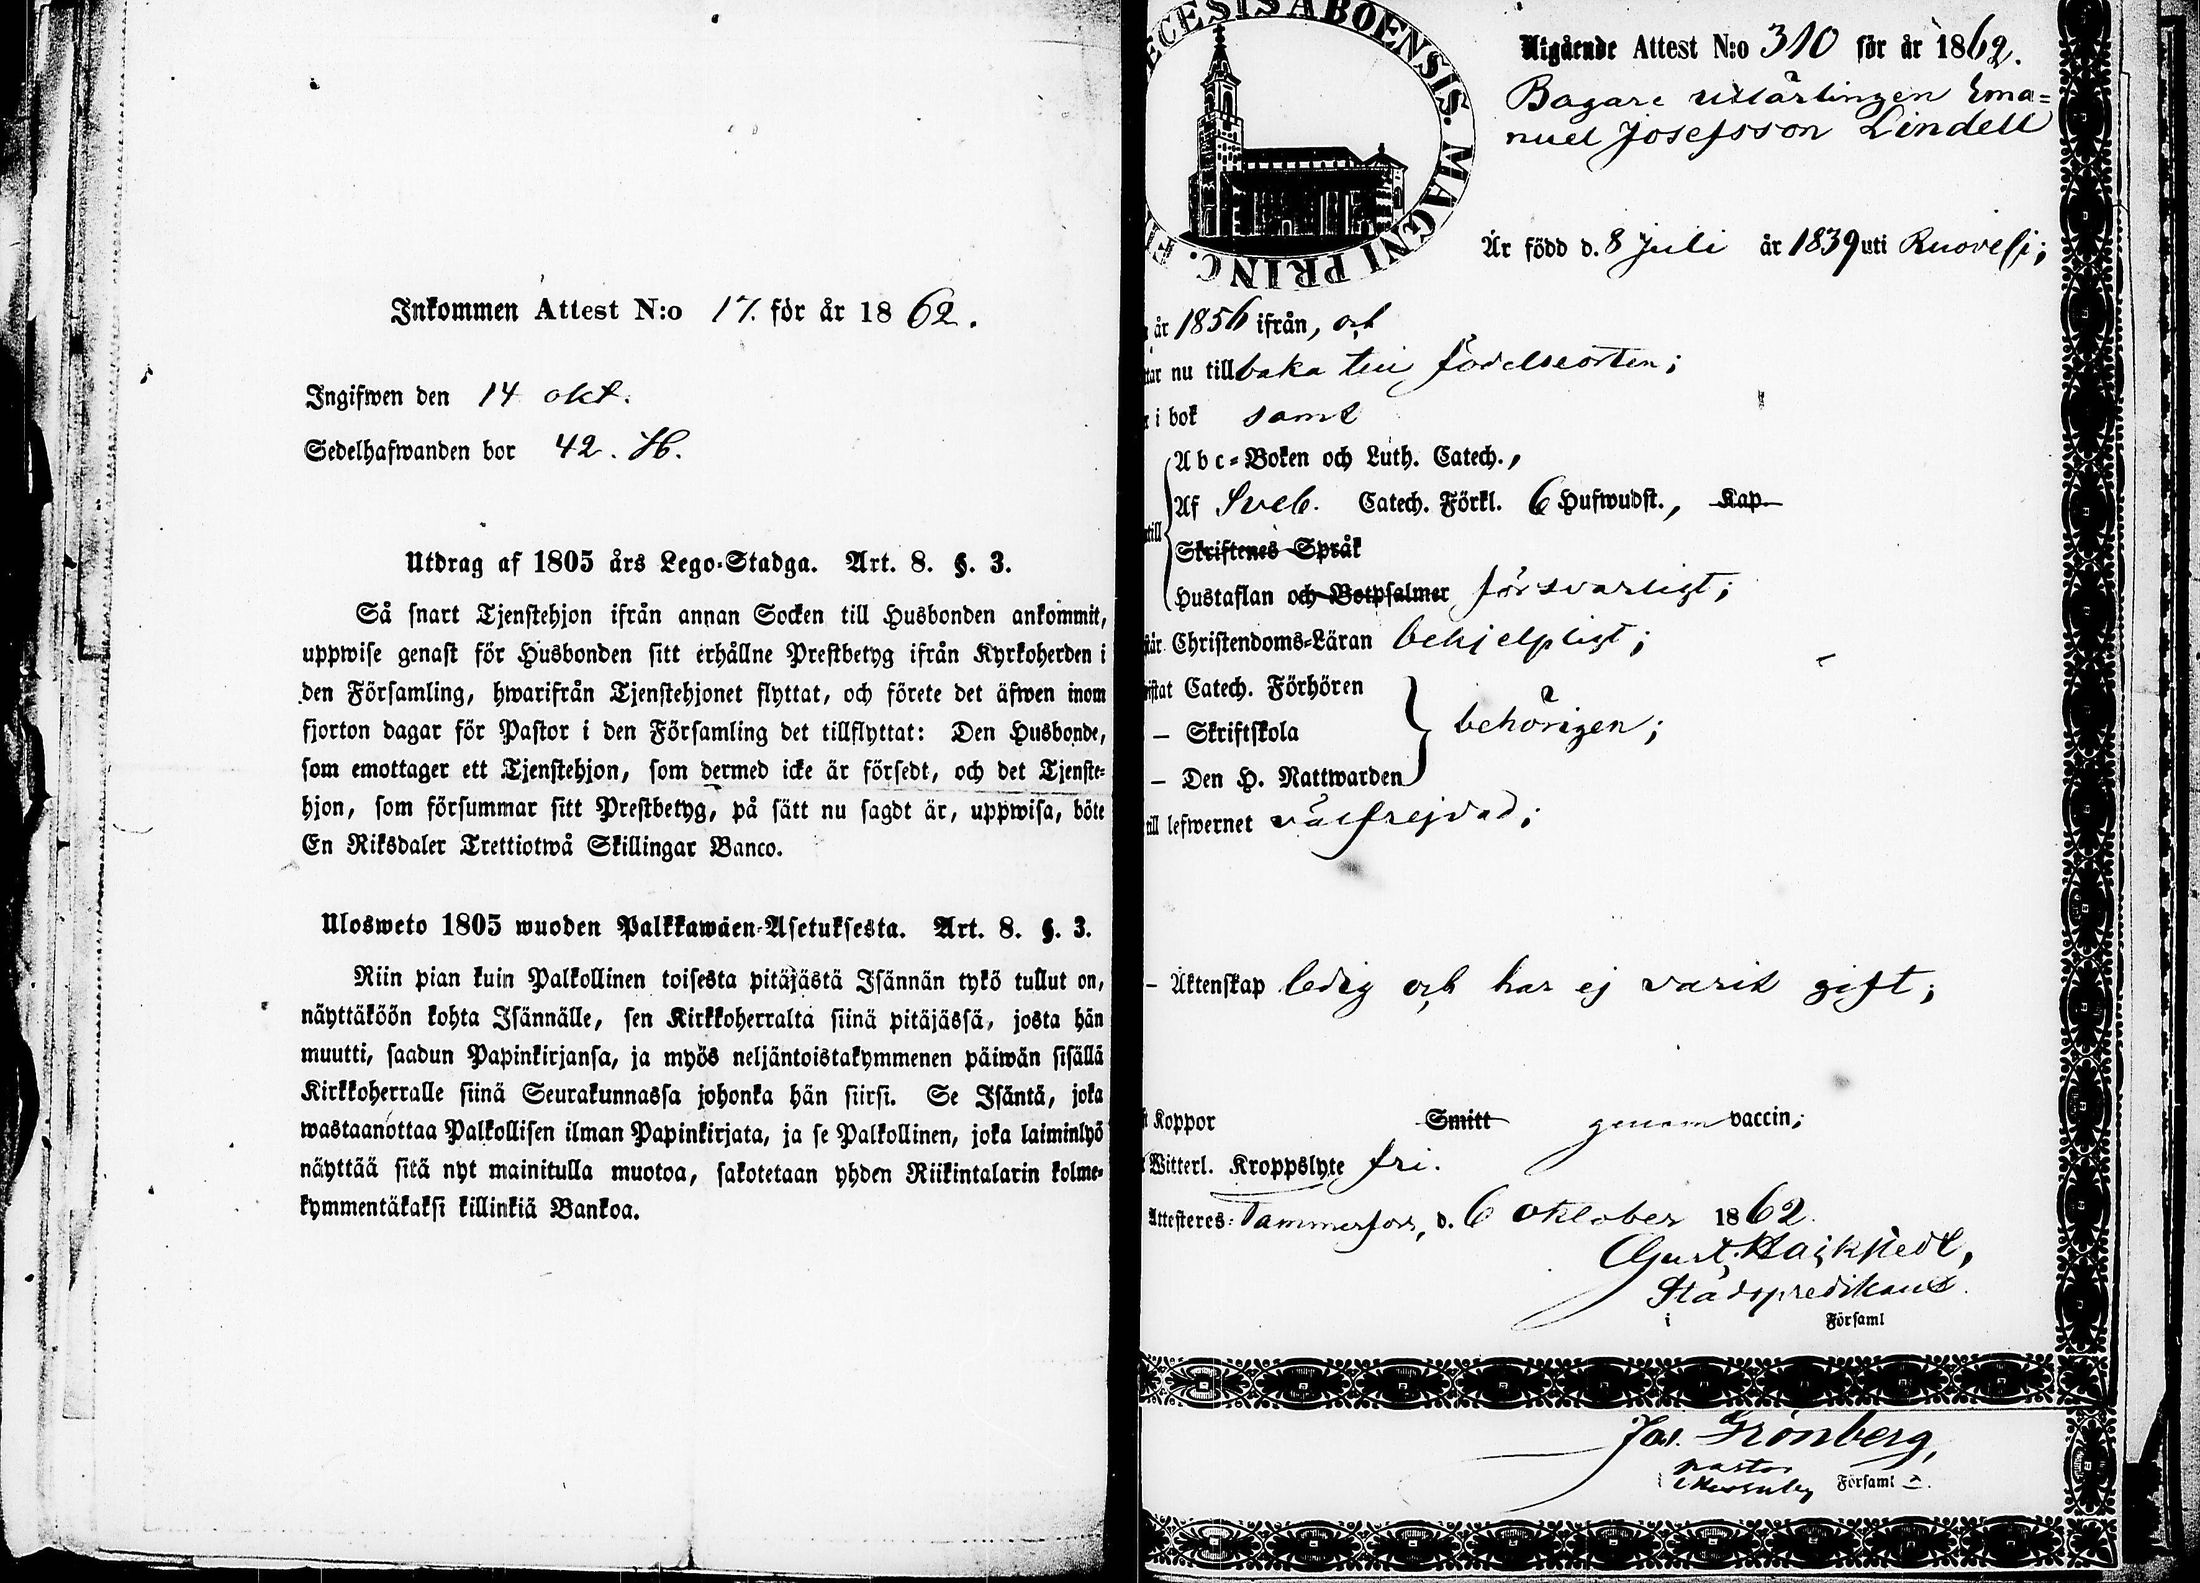 Inkommen Attest N:o 17. för år 1862.
Ingifwen den 14 okt.
Sedelhafwanden bor 42. H.
Utdrag af 1805 års Lego-Stadga. Art. 8. §. 3.
Så snart Tjenstehjon ifrån annan Socken till Husbonden ankommit,
uppwise genast för Husbonden sitt erhållne Prestbetyg ifrån Kyrkoherden i
den Församling, hwarifrån Tjenstehjonet flyttat, och förete det äfwen inom
fjorton dagar för Pastor i den Församling det tillflyttat: Den Husbonde,
som emottager ett Tjenstehjon, som dermed icke är försedt, och det Tjenste-
hjon, som försummar sitt Prestbetyg, på sätt nu sagdt är, uppwisa, böte
En Riksdaler Trettiotwå Skillingar Banco.
Ulosweto 1805 wuoden Palkkawäen-Asetuksesta. Art. 8. §. 3.
Niin pian kuin Palkollinen toisesta pitäjästä Isännän tykö tullut on,
näyttäköön kohta Isännälle, sen Kirkkoherralta siinä pitäjässä, josta hän
muutti, saadun Papinkirjansa, ja myös neljäntoistakymmenen päiwän sisällä
Kirkkoherralle siinä Seurakunnassa johonka hän siirsi. Se Isäntä, joka
wastaanottaa Palkollisen ilman Papinkirjata, ja se Palkollinen, joka laiminlyö
näyttää sitä nyt mainitulla muotoa, sakotetaan yhden Riikintalarin kolme-
kymmentäkaksi killinkiä Bankoa.
ECESIS ABOENSIS. MAGNI PRINC. F
Utgående Attest N:o 310 för år 1862.
Bagare utlärlingen Ema=
nuel Josefsson Lindell
Är född d. 8 Juli år 1839 uti Ruovesi;
år 1856 ifrån, och
nu tillbaka till födelseorten;
i bok samt
Abc-Boken och Luth. Catech.,
till
Af Sveb. Catech. Förkl. 6 Hufwudst., Kap.
Skriftenes Språk
Hustaflan och Botpsalmer försvarligt;
Christendoms-Läran behjelpligt;
Catech. Förhören
– Skriftskola behörigen;
– Den H. Nattwarden
till lefwernet välfrejdad;
– Äktenskap ledig och har ej varit gift;
Koppor Smitt genom vaccin;
Witterl. Kroppslyte fri.
Attesteres: Tammerfors, d. 6 Oktober 1862.
Stadspredikant.
i Församl
Jos. Grönberg,
pastor
i Församl